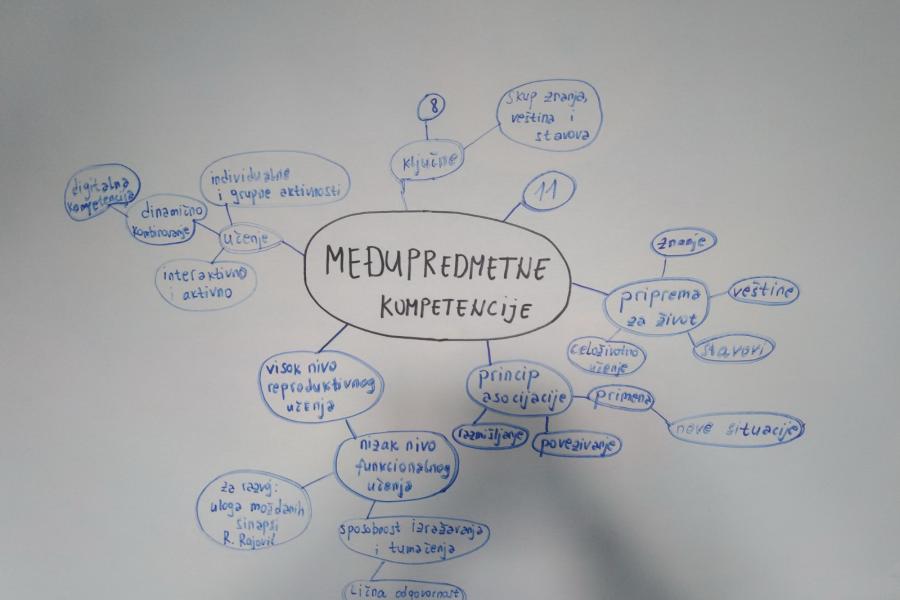 8
ključne
skup znanja,
veština i
stavova
11
MEĐUPREDMETNE
KOMPETENCIJE
individualne
i grupne aktivnosti
digitalna
kompetencija
dinamično
kombinovanje
učenje
interaktivno
i aktivno
znanje
priprema
za život
veštine
stavovi
celoživotno
učenje
princip
asocijacije
primena
nove situacije
razmišljanje
povezivanje
visok nivo
reproduktivnog
učenja
nizak nivo
funkcionalnog
učenja
za razvoj:
uloga moždanih
sinapsi
R. Rajović
sposobnost izražavanja
i tumačenja
lična odgovornost